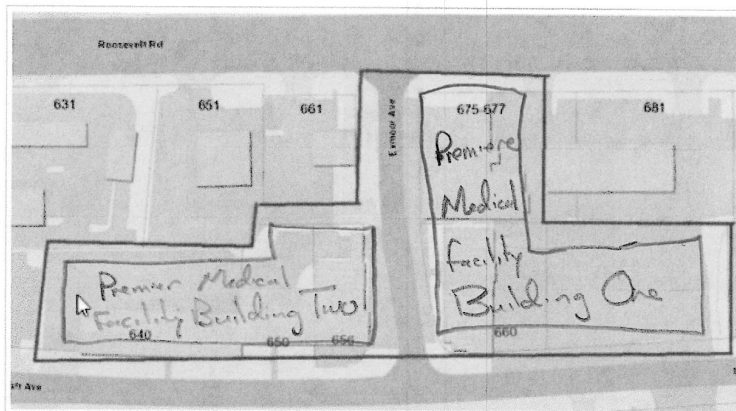 Roosevelt Rd
631
651
661
Exmoor Ave
675-677
681
Premiere
Medical
Facility
Building One
660
Premier Medical
Facility Building Two
640
650
656
Ave